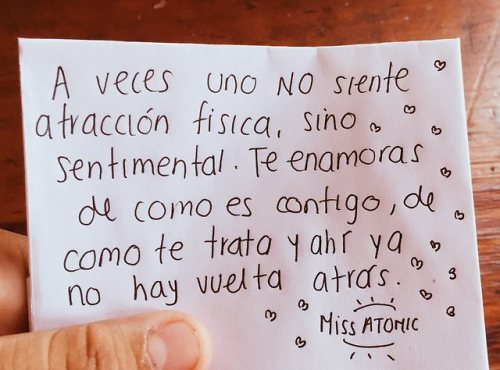 A veces uno NO siente
atracción física, sino
sentimental. Te enamoras
de como es contigo, de
como te trata y ahí ya
no hay vuelta atrás.
Miss ATOMIC